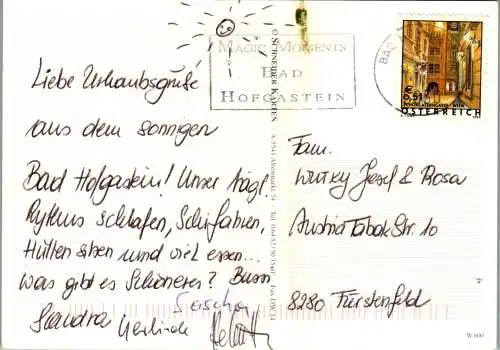 Liebe Urlaubsgrüße
aus dem sonnigen
Bad Hofgastein! Unser tägl.
Rytmus schlafen, Schifahren,
Hütten sitzen und viel essen...
was gibt es Schöneres? Bussi
Sandra Gerlinde
MAGIC MOMENTS
BAD
HOFGASTEIN
© SCHNEIDER KARTEN
A-5541 Altenmarkt
BAD
€ 0,51
WIEN
ÖSTERREICH
Fam.
Josef & Rosa
Austria Tabak Str. 10
8280 Fürstenfeld
W 600